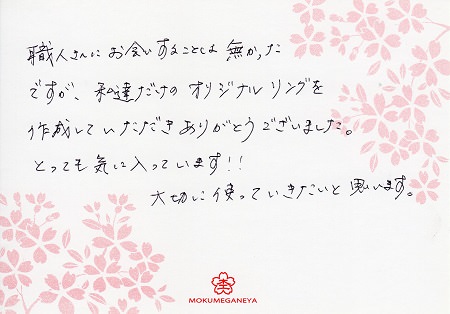 職人さんにお会いすることは無かった
ですが、私達だけのオリジナルリングを
作成していただきありがとうございました。
とっても気に入っています!!
大切に使っていきたいと思います。
杢
MOKUMEGANEYA